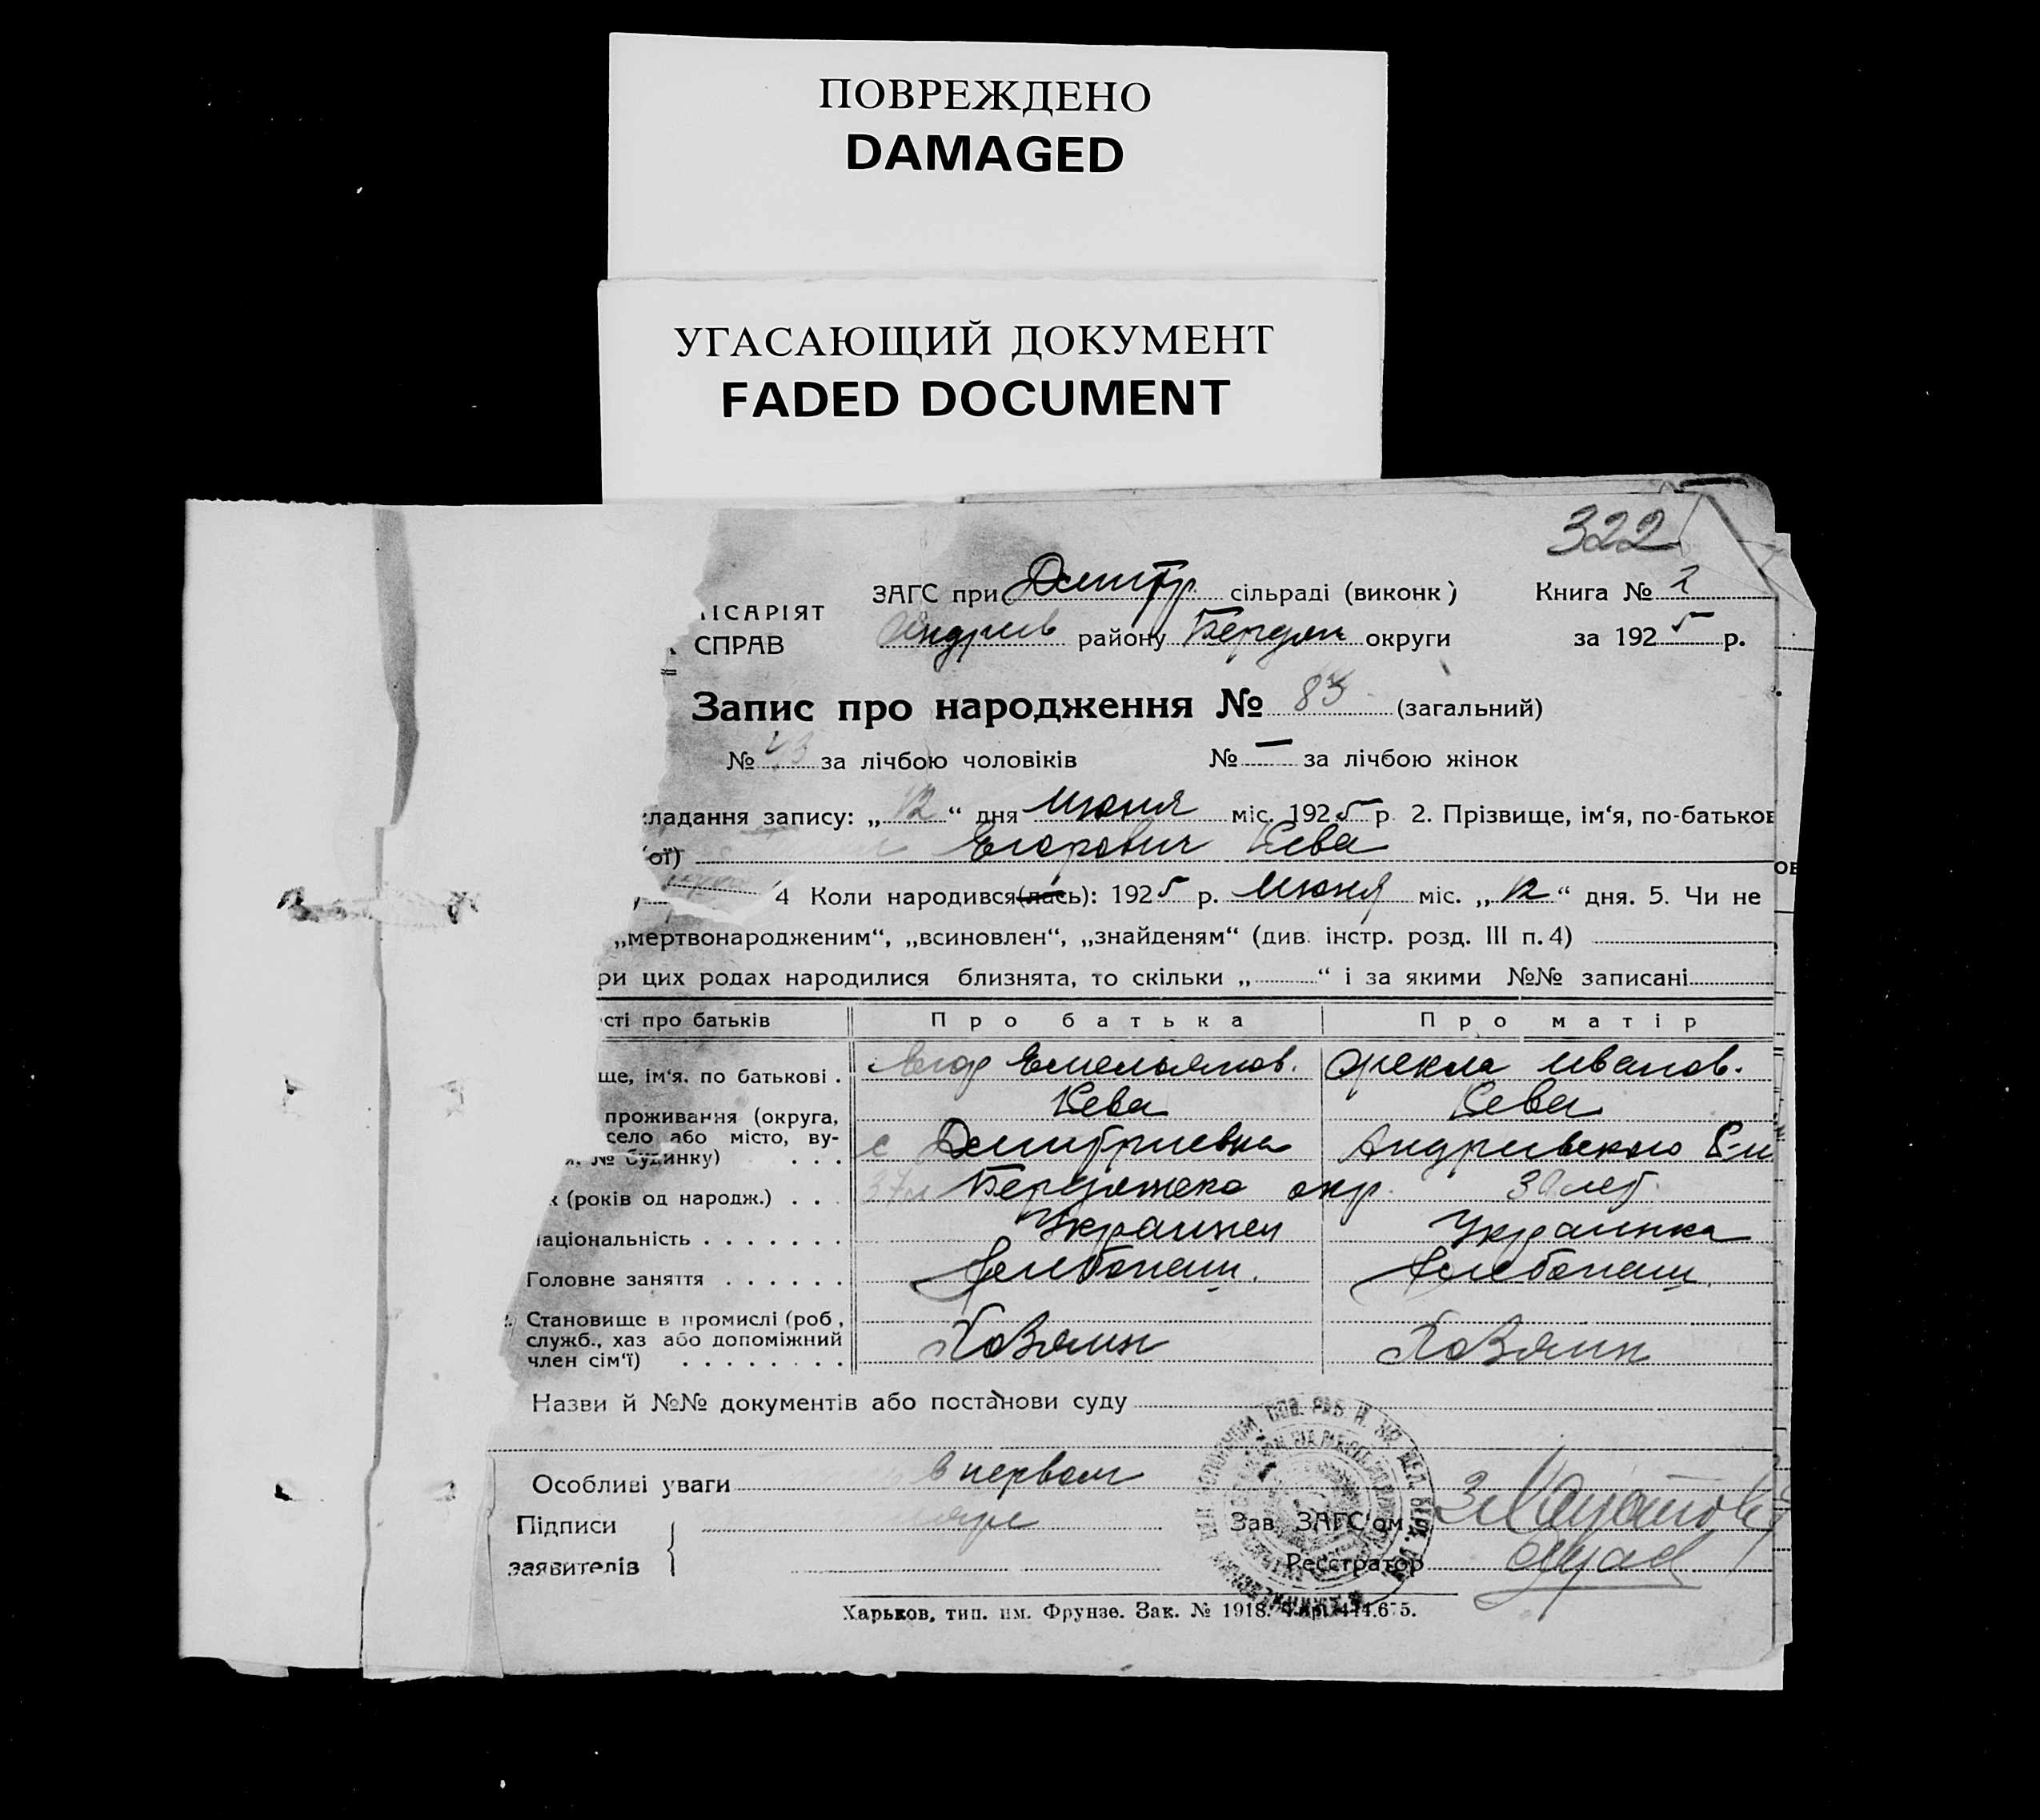 ПОВРЕЖДЕНО
DAMAGED
УГАСАЮЩИЙ ДОКУМЕНТ
FADED DOCUMENT
322
ІСАРІЯТ
СПРАВ
ЗАГС при Дмитр. сільраді (виконк)
Книга № 2
Андрив району Бердян округи
за 1925 р.
Запис про народження № 83 (загальний)
№ 43 за лічбою чоловіків № — за лічбою жінок
кладання запису: „12“ дня Июня міс. 1925 р. 2. Прізвище, ім‘я, по-батьков
ої) Егорович Кева
4 Коли народився(лась): 1925 р. Июня міс. „12“ дня. 5. Чи не
„мертвонародженим“, „всиновлен“, „знайденям“ (див. інстр. розд. III п. 4)
ри цих родах народилися близнята, то скільки „ “ і за якими №№ записані
сті про батьків Про батька Про матір
ще, ім‘я, по батькові . Егор Емельянов. Фекла Иванов.
Кева Кева
проживання (округа,
село або місто, ву-
№ будинку) . . . с Дмитриевка Андриевского Р-н
к (років од народж.) . . . 37 л Бердянско окр. 30 лет
аціональність . . . . . . . Украинец Украинка
Головне заняття . . . . . . Хлебопаш. Хлебопаш.
Становище в промислі (роб,
служб., хаз або допоміжний
член сім‘ї) . . . . . . . . Хозяин Хозяин
Назви й №№ документів або постанови суду
Особливі уваги в первом
Підписи
заявителів
Зав. ЗАГС‘ом
Реєстратор
Харьков, тип. им. Фрунзе. Зак. № 1918.